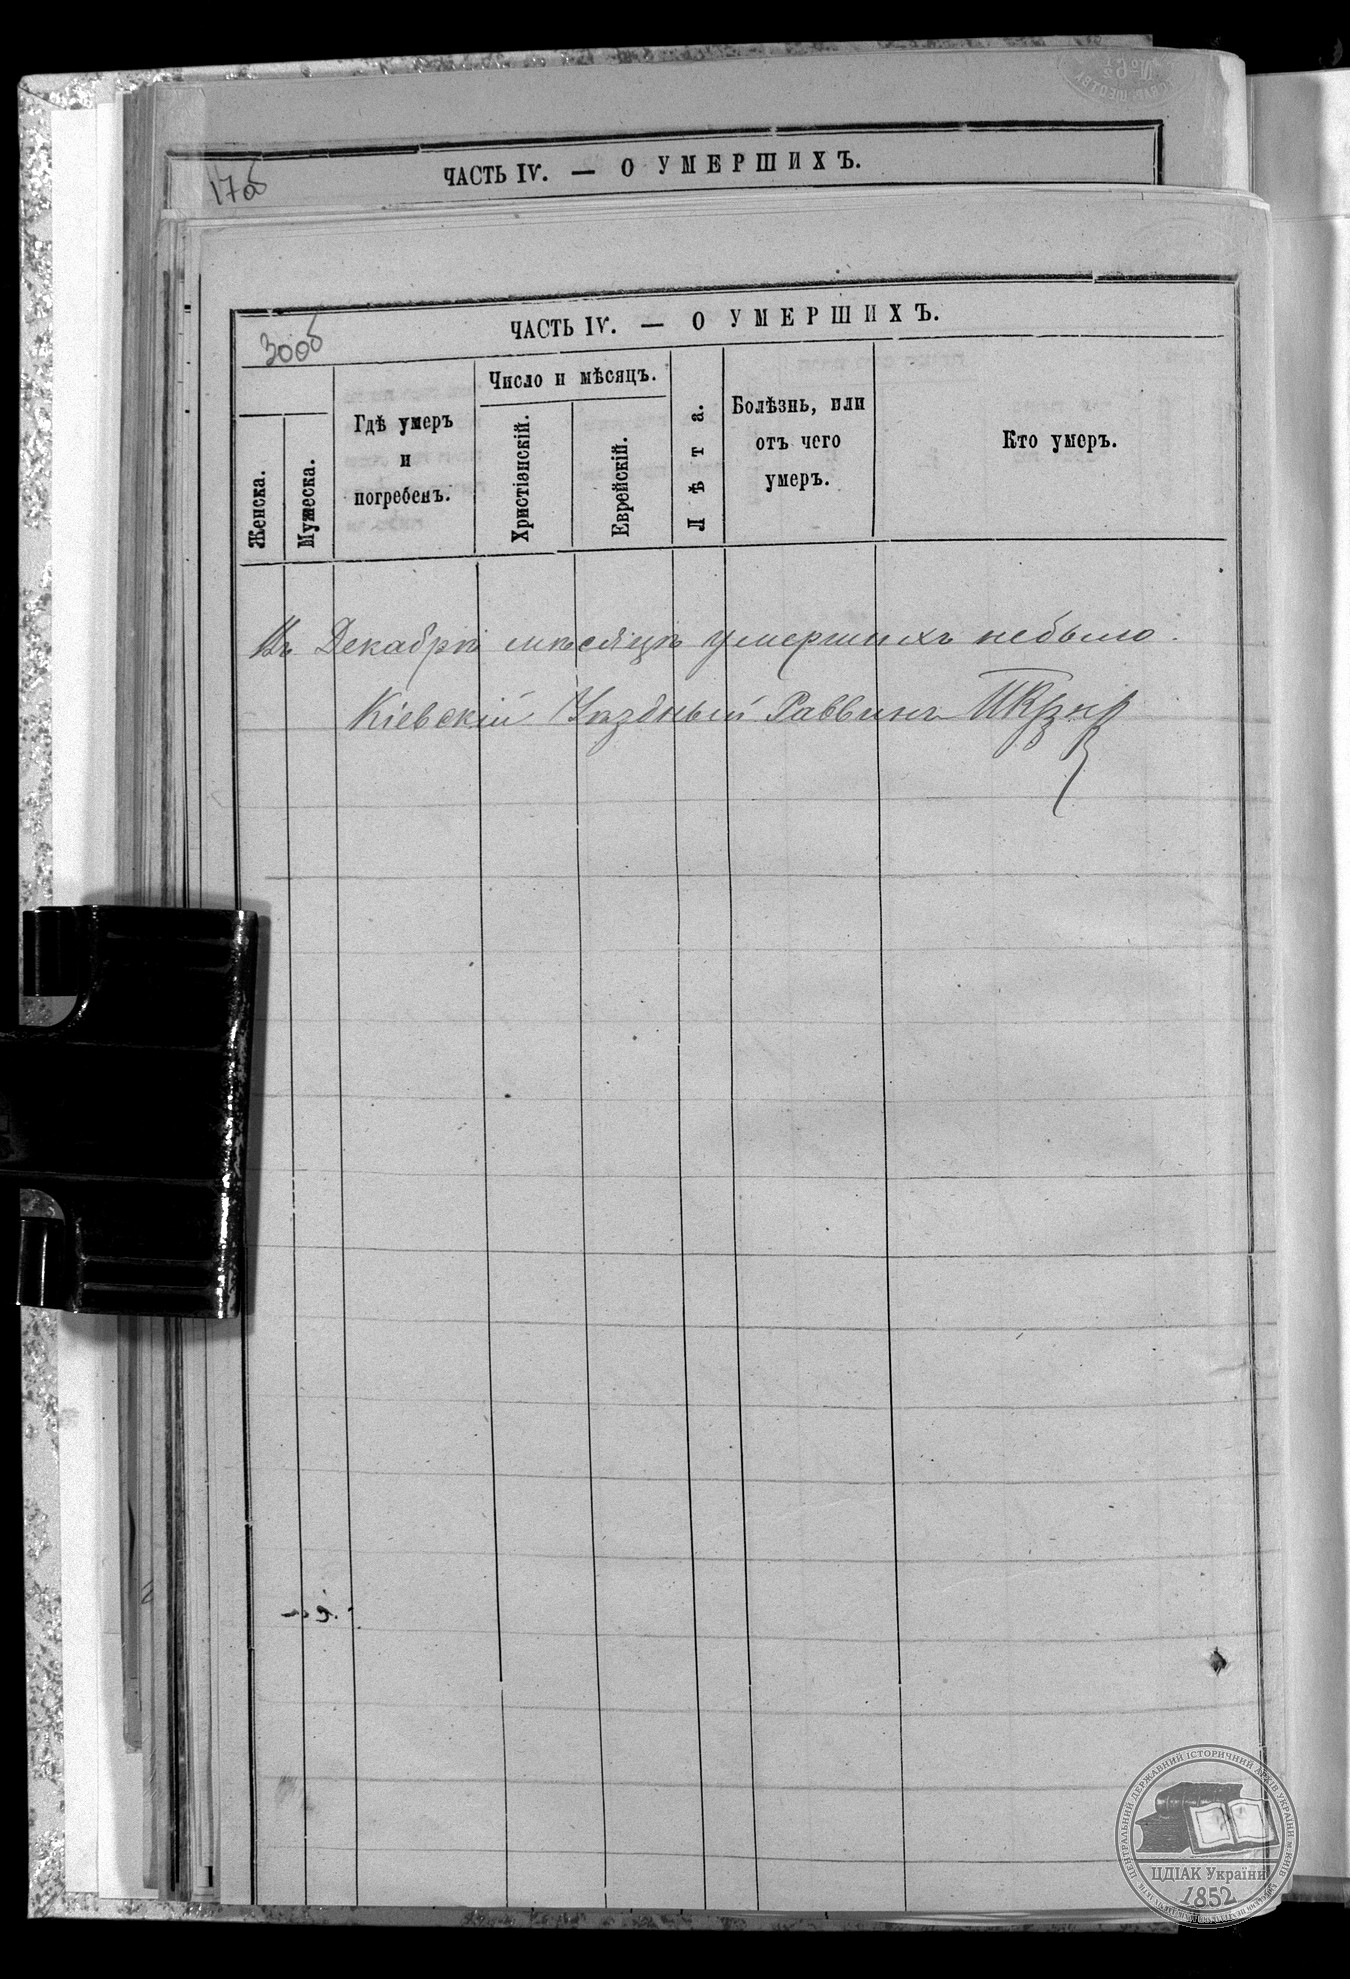 ЧАСТЬ IV. — О УМЕРШИХЪ.
17об
ЧАСТЬ IV. — О УМЕРШИХЪ.
300б
Женска.
Мужеска.
Гдѣ умеръ
и
погребенъ.
Число и мѣсяцъ.
Христіянскій.
Еврейскій.
Лѣта.
Болѣзнь, или
отъ чего
умеръ.
Кто умеръ.
Въ Декабрѣ мѣсяцѣ умершихъ небыло.
Кіевскій Уѣздный Раввинъ
ЦЕНТРАЛЬНИЙ ДЕРЖАВНИЙ ІСТОРИЧНИЙ АРХІВ УКРАЇНИ М.КИЇВ
ЦДІАК України
1852